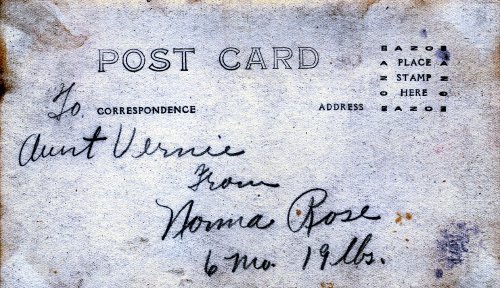 POST CARD
AZOSA
PLACE
STAMP
HERE
AZOSA
To
CORRESPONDENCE
ADDRESS
Aunt Vernie
From
Norma Rose
6 mo. 19 lbs.